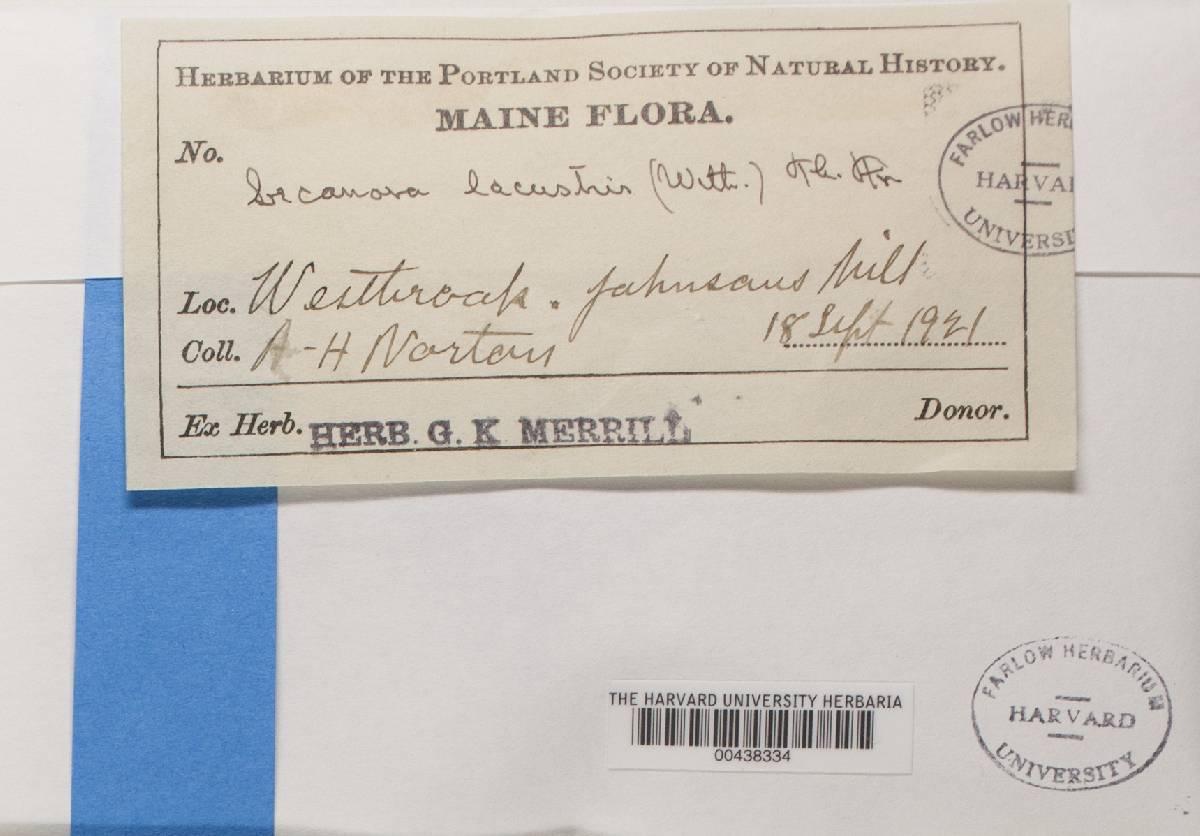 HERBARIUM OF THE PORTLAND SOCIETY OF NATURAL HISTORY.
MAINE FLORA.
No.
lacustris (With.) Th. Fr.
Loc. Westbrook. Johnsons hill
Coll. A-H Norton 18 Sept 1921
Ex Herb. HERB. G. K. MERRILL Donor.
FARLOW HER
HARVA
UNIVERSI
THE HARVARD UNIVERSITY HERBARIA
00438334
FARLOW HERBARIUM
HARVARD
UNIVERSITY